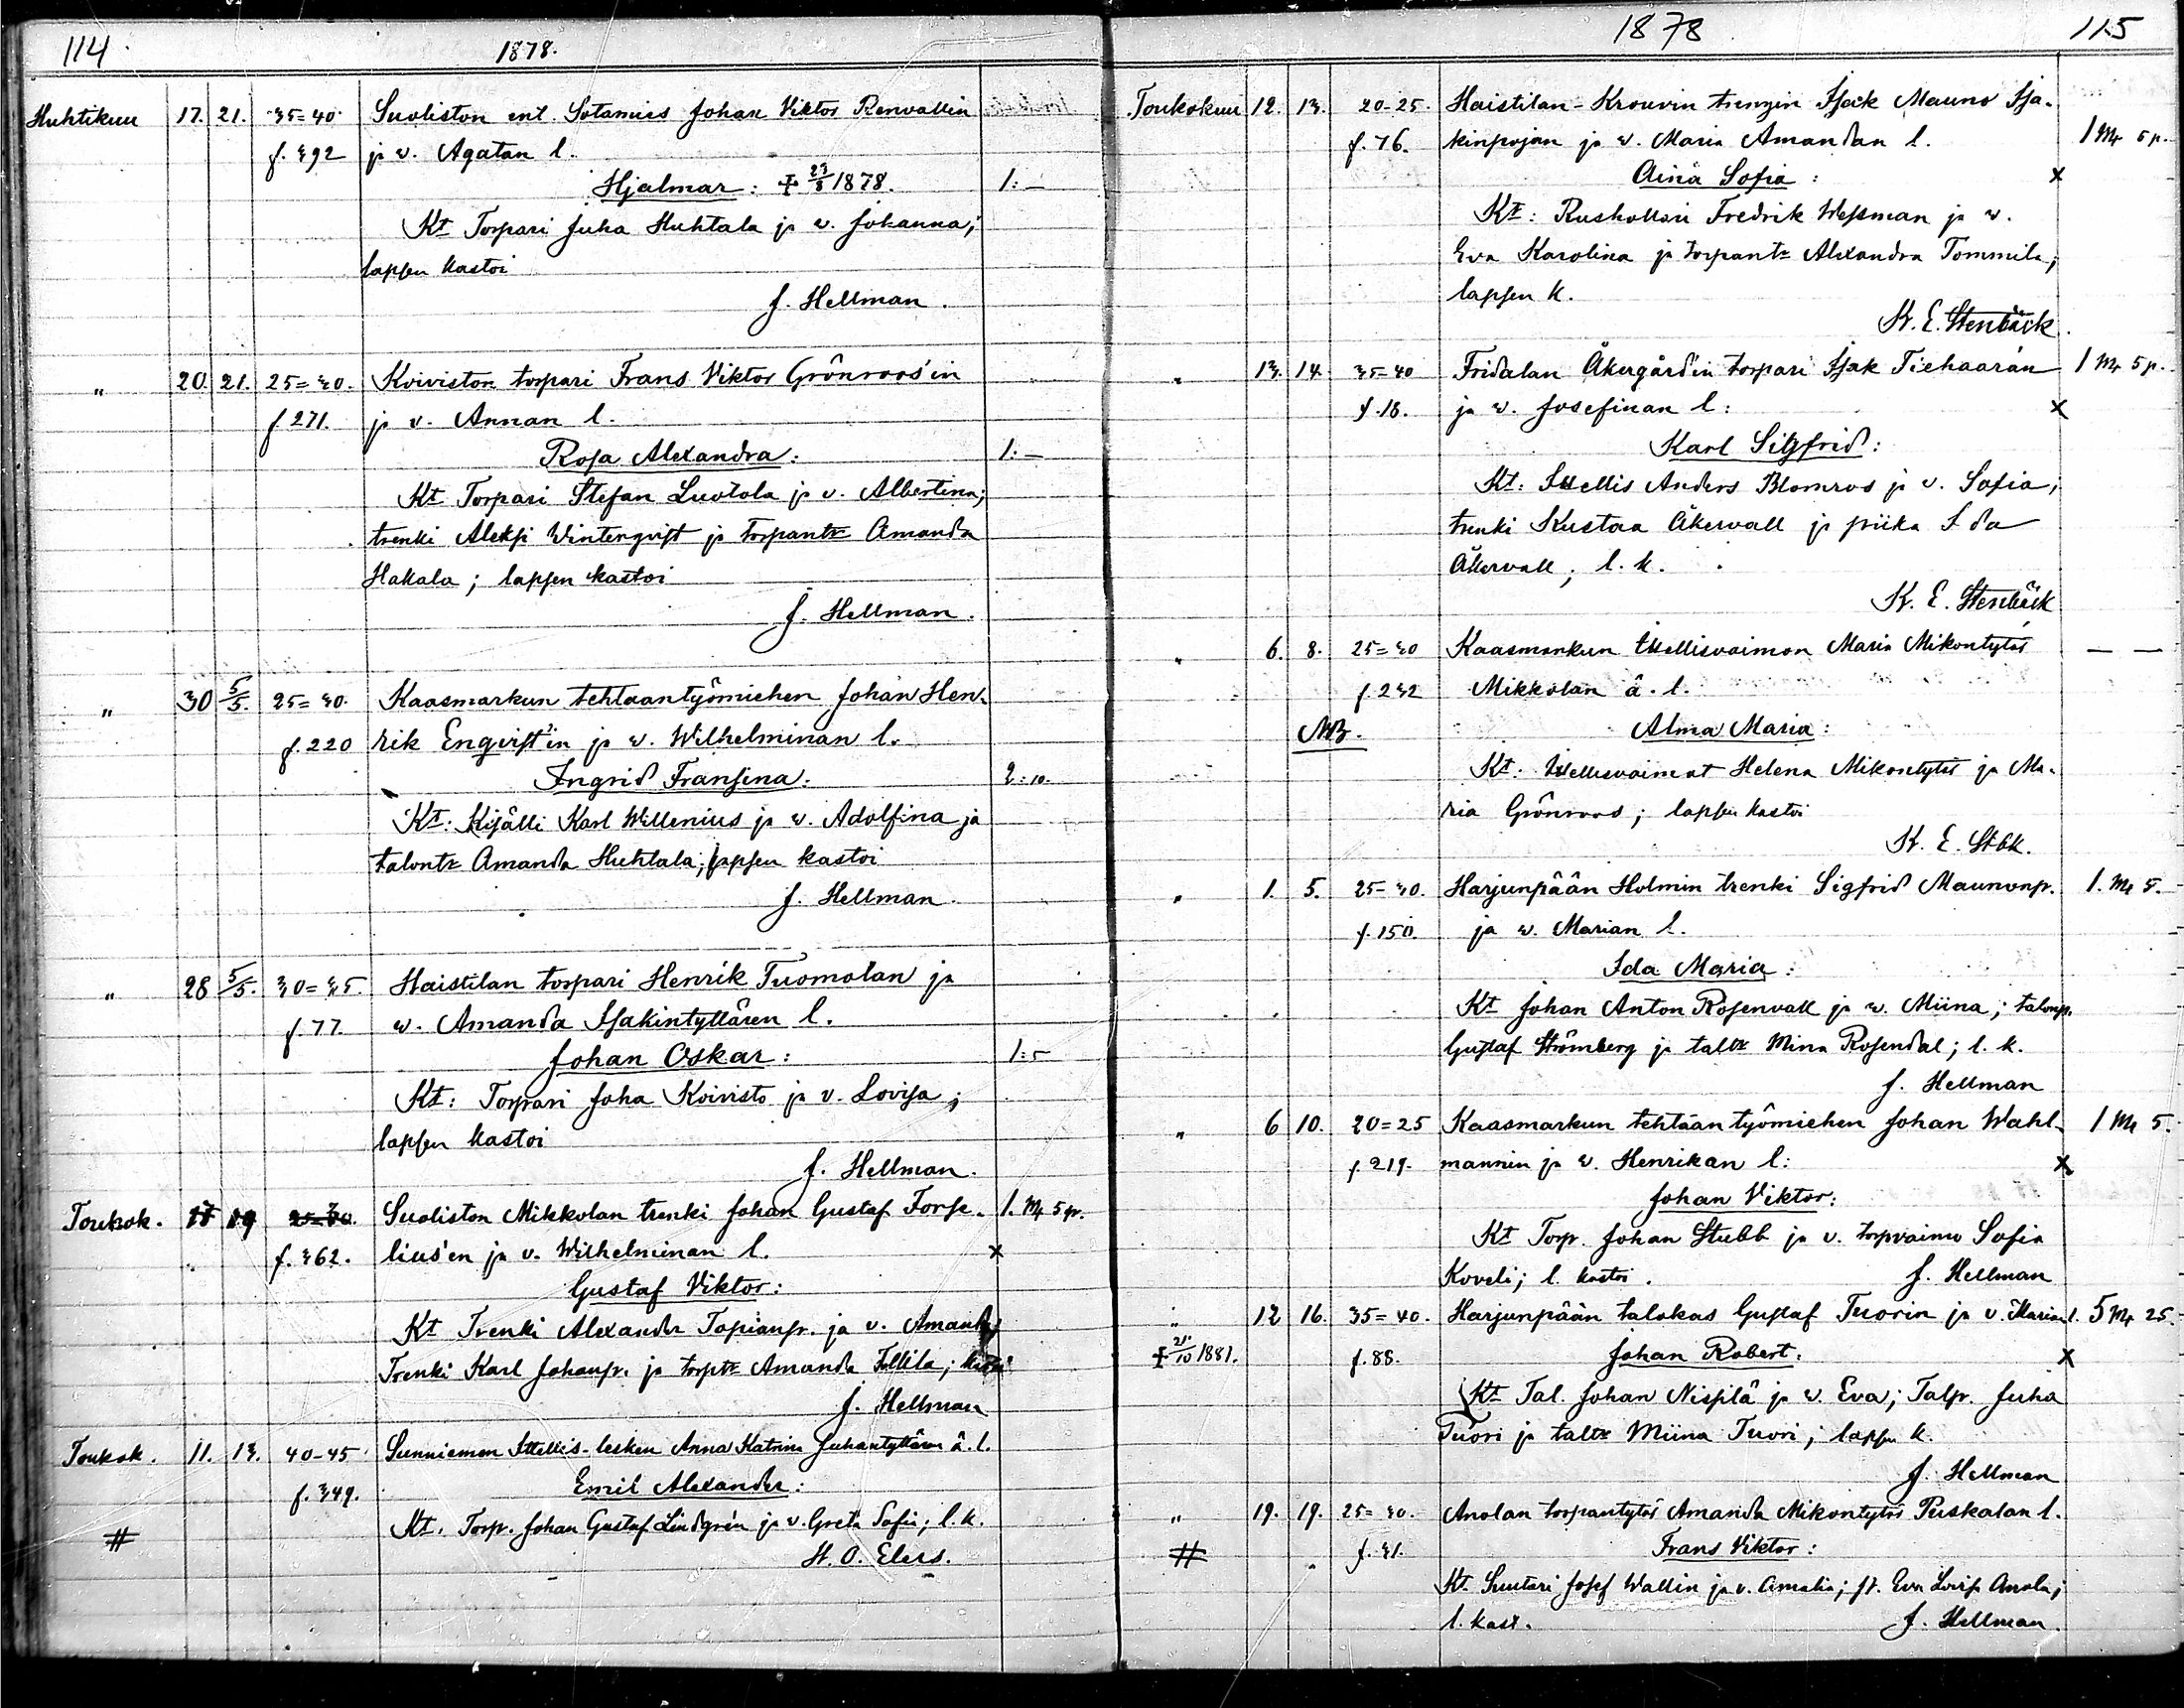 114.
1878.
Huhtikuu 17. 21. 35=40. Suoliston ent. Sotamies Johan Viktor Renvallin
f. 392 ja v. Agatan l.
Hjalmar: ‡ 23/8 1878. 1:—
Kt Torpari Juha Huhtala ja v. Johanna;
lapsen kastoi
J. Hellman.
" 20. 21. 25=30. Koiviston torpari Frans Viktor Grönroos'in
f. 271. ja v. Annan l.
Rosa Alexandra: 1:—
Kt Torpari Stefan Luotola ja v. Albertina;
trenki Aleksi Winterqvist ja torpantr Amanda
Hakala; lapsen kastoi
J. Hellman.
" 30 5/5. 25=30. Kaasmarkun tehtaantyömiehen Johan Hen-
f. 220 rik Engvist'in ja v. Wilhelminan l.
Ingrid Fransina: 2:10.
Kt: Kisälli Karl Willenius ja v. Adolfina ja
talontr Amanda Huhtala; lapsen kastoi
J. Hellman.
" 28 5/5. 30=35. Haistilan torpari Henrik Tuomolan ja
f. 77. v. Amanda Isakintyttären l.
Johan Oskar: 1:5
Kt: Torpari Joha Koivisto ja v. Lovisa;
lapsen kastoi
J. Hellman.
Toukok. 17 19 25=30. Suoliston Mikkolan trenki Johan Gustaf Forse- 1. Mk 5 p.
f. 362. lius'en ja v. Wilhelminan l. x
Gustaf Viktor:
Kt Trenki Alexander Tapianp. ja v. Amanda;
Trenki Karl Johanp. ja torptr Amanda Tollila; kastoi
J. Hellman
Toukok. 11. 13. 40-45 Sunniemen Itellis-lesken Anna Katrina Juhantyttären ä. l.
f. 349. Emil Alexander:
# Kt. Torp. Johan Gustaf Lindgrén ja v. Greta Sofia; l. k.
H. O. Elers.
1878
115
Toukokuu 12. 13. 20-25. Haistilan-Krouvin trengin Isak Mauno Isa-
f. 76. kinpojan ja v. Maria Amandan l. 1 Mk 5 p.
Aina Sofia: x
Kt: Rushollari Fredrik Wessman ja v.
Eva Karolina ja torpantr Alexandra Tommila;
lapsen k.
K. E. Stenbäck.
" 13. 14. 35=40 Fridalan Åkergård'in torpari Isak Tiehaaran 1 Mk 5 p.
f. 18. ja v. Josefinan l: x
Karl Sigfrid:
Kt: Itellis Anders Blomroos ja v. Sofia;
trenki Kustaa Åkervall ja piika Ida
Åkervall; l. k.
K. E. Stenbäck
" 6. 8. 25=30 Kaasmarkun Itellisvaimon Maria Mikontytär — —
f. 232 Mikkolan ä. l.
NB. Alma Maria:
Kt: Itellisvaimot Helena Mikontytär ja Ma-
ria Grönroos; lapsen kastoi
K. E. Stbk.
" 1. 5. 25=30. Harjunpään Holmin trenki Sigfrid Maununp. 1. Mk 5.
f. 150. ja v. Marian l.
Ida Maria:
Kt Johan Anton Rosenvall ja v. Miina; talonp.
Gustaf Strömberg ja taltr Mina Rosendal; l. k.
J. Hellman
" 6 10. 20=25 Kaasmarkun tehtaan työmiehen Johan Wahl- 1 Mk 5.
f. 219. mannin ja v. Henrikan l: x
Johan Viktor:
Kt Torp. Johan Stubb ja v. torpvaimo Sofia
Koveli; l. kastoi. J. Hellman
" 12 16. 35=40. Harjunpään talokas Gustaf Tuorin ja v. Marian l. 5 Mk 25.
‡ 21/10 1881. f. 88. Johan Robert. x
Kt Tal. Johan Nispilä ja v. Eva; Talp. Juha
Tuori ja taltr Miina Tuori; lapsen k.
J. Hellman
" 19. 19. 25=30. Anolan torpantytär Amanda Mikontytär Puskalan l.
# f. 31. Frans Viktor:
Kt. Suutari Josef Wallin ja v. Amalia; Eva Lovisa Anola;
l. kast. J. Hellman.